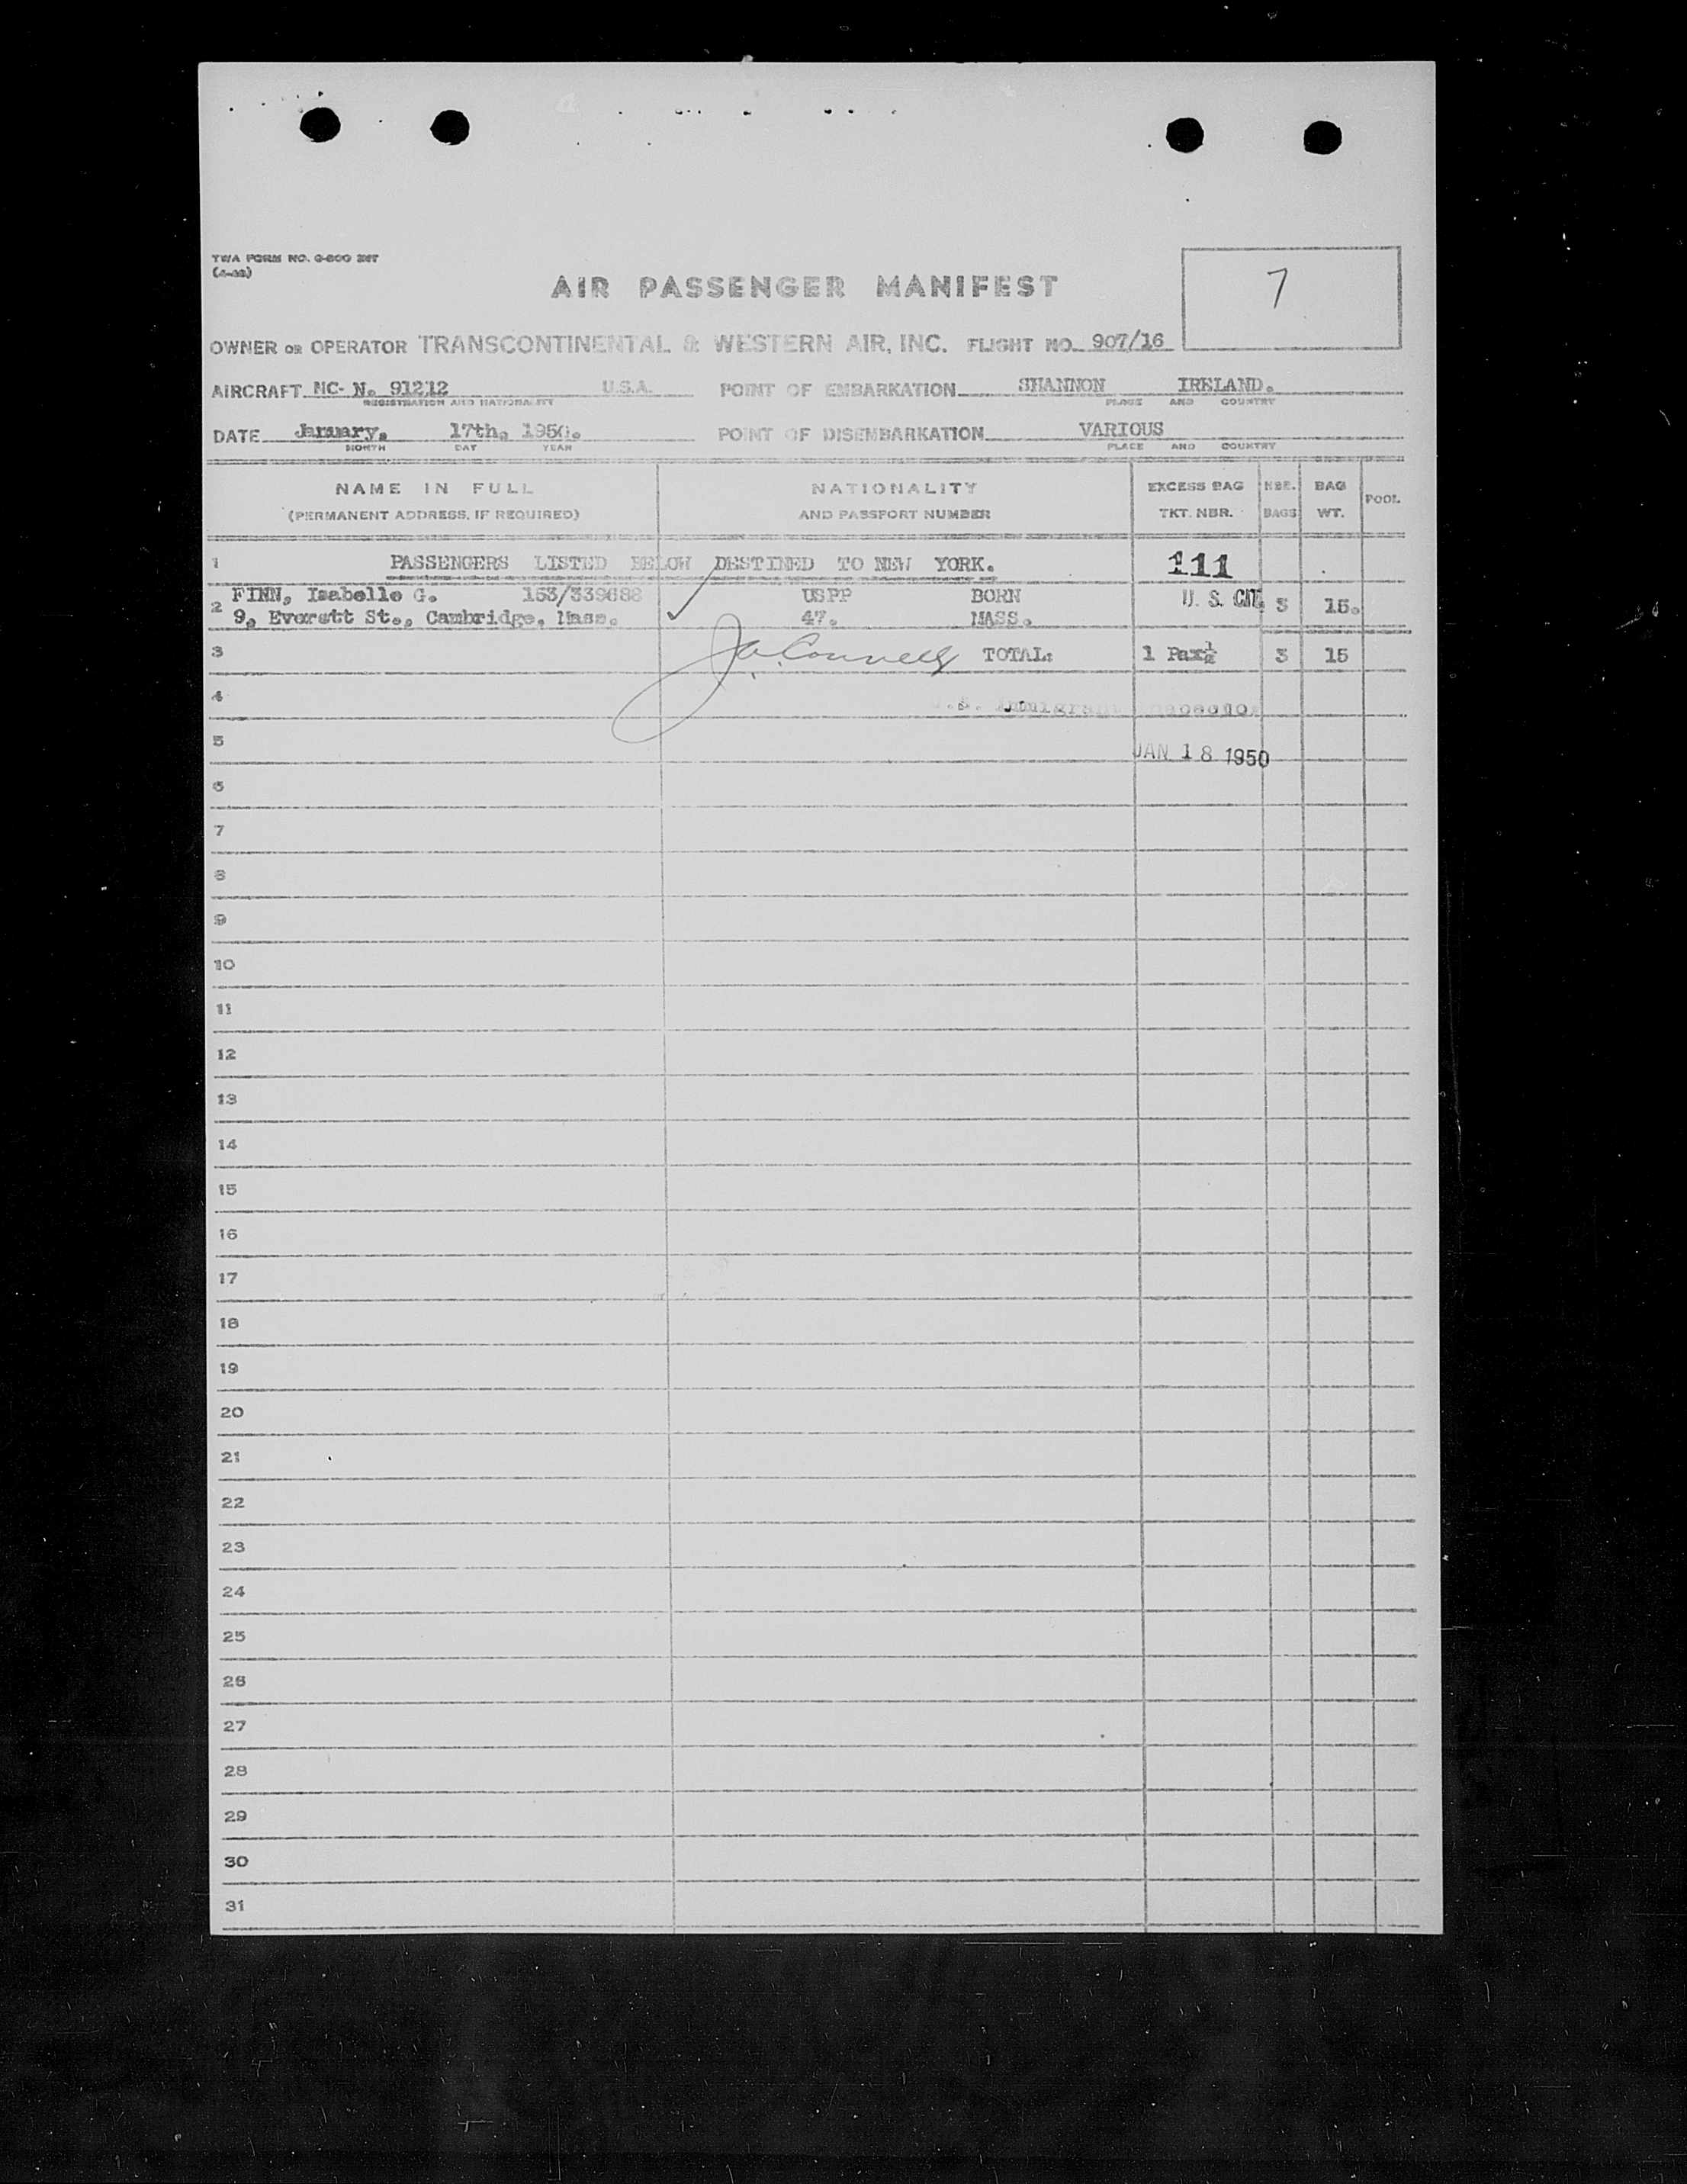 TWA FORM NO. O-800 INT
AIR PASSENGER MANIFEST
7
OWNER OR OPERATOR TRANSCONTINENTAL & WESTERN AIR, INC. FLIGHT NO. 907/16
AIRCRAFT NC- N. 91212 U.S.A. POINT OF EMBARKATION SHANNON IRELAND.
REGISTRATION AND NATIONALITY PLACE AND COUNTRY
DATE January. 17th. 1950. POINT OF DISEMBARKATION VARIOUS
MONTH DAY YEAR PLACE AND COUNTRY
NAME IN FULL NATIONALITY EXCESS BAG NBR. BAG POOL
(PERMANENT ADDRESS, IF REQUIRED) AND PASSPORT NUMBER TKT. NBR. BAGS WT.
1 PASSENGERS LISTED BELOW DESTINED TO NEW YORK. 111
2 FINN, Isabelle G. 153/339688 USPP BORN U. S. CIT. 3 15.
9, Everett St., Cambridge, Mass. 47. MASS.
3 TOTAL: 1 Pax½ 3 15
4 U.S. Immigrant Inspector
5 JAN 18 1950
6
7
8
9
10
11
12
13
14
15
16
17
18
19
20
21
22
23
24
25
26
27
28
29
30
31